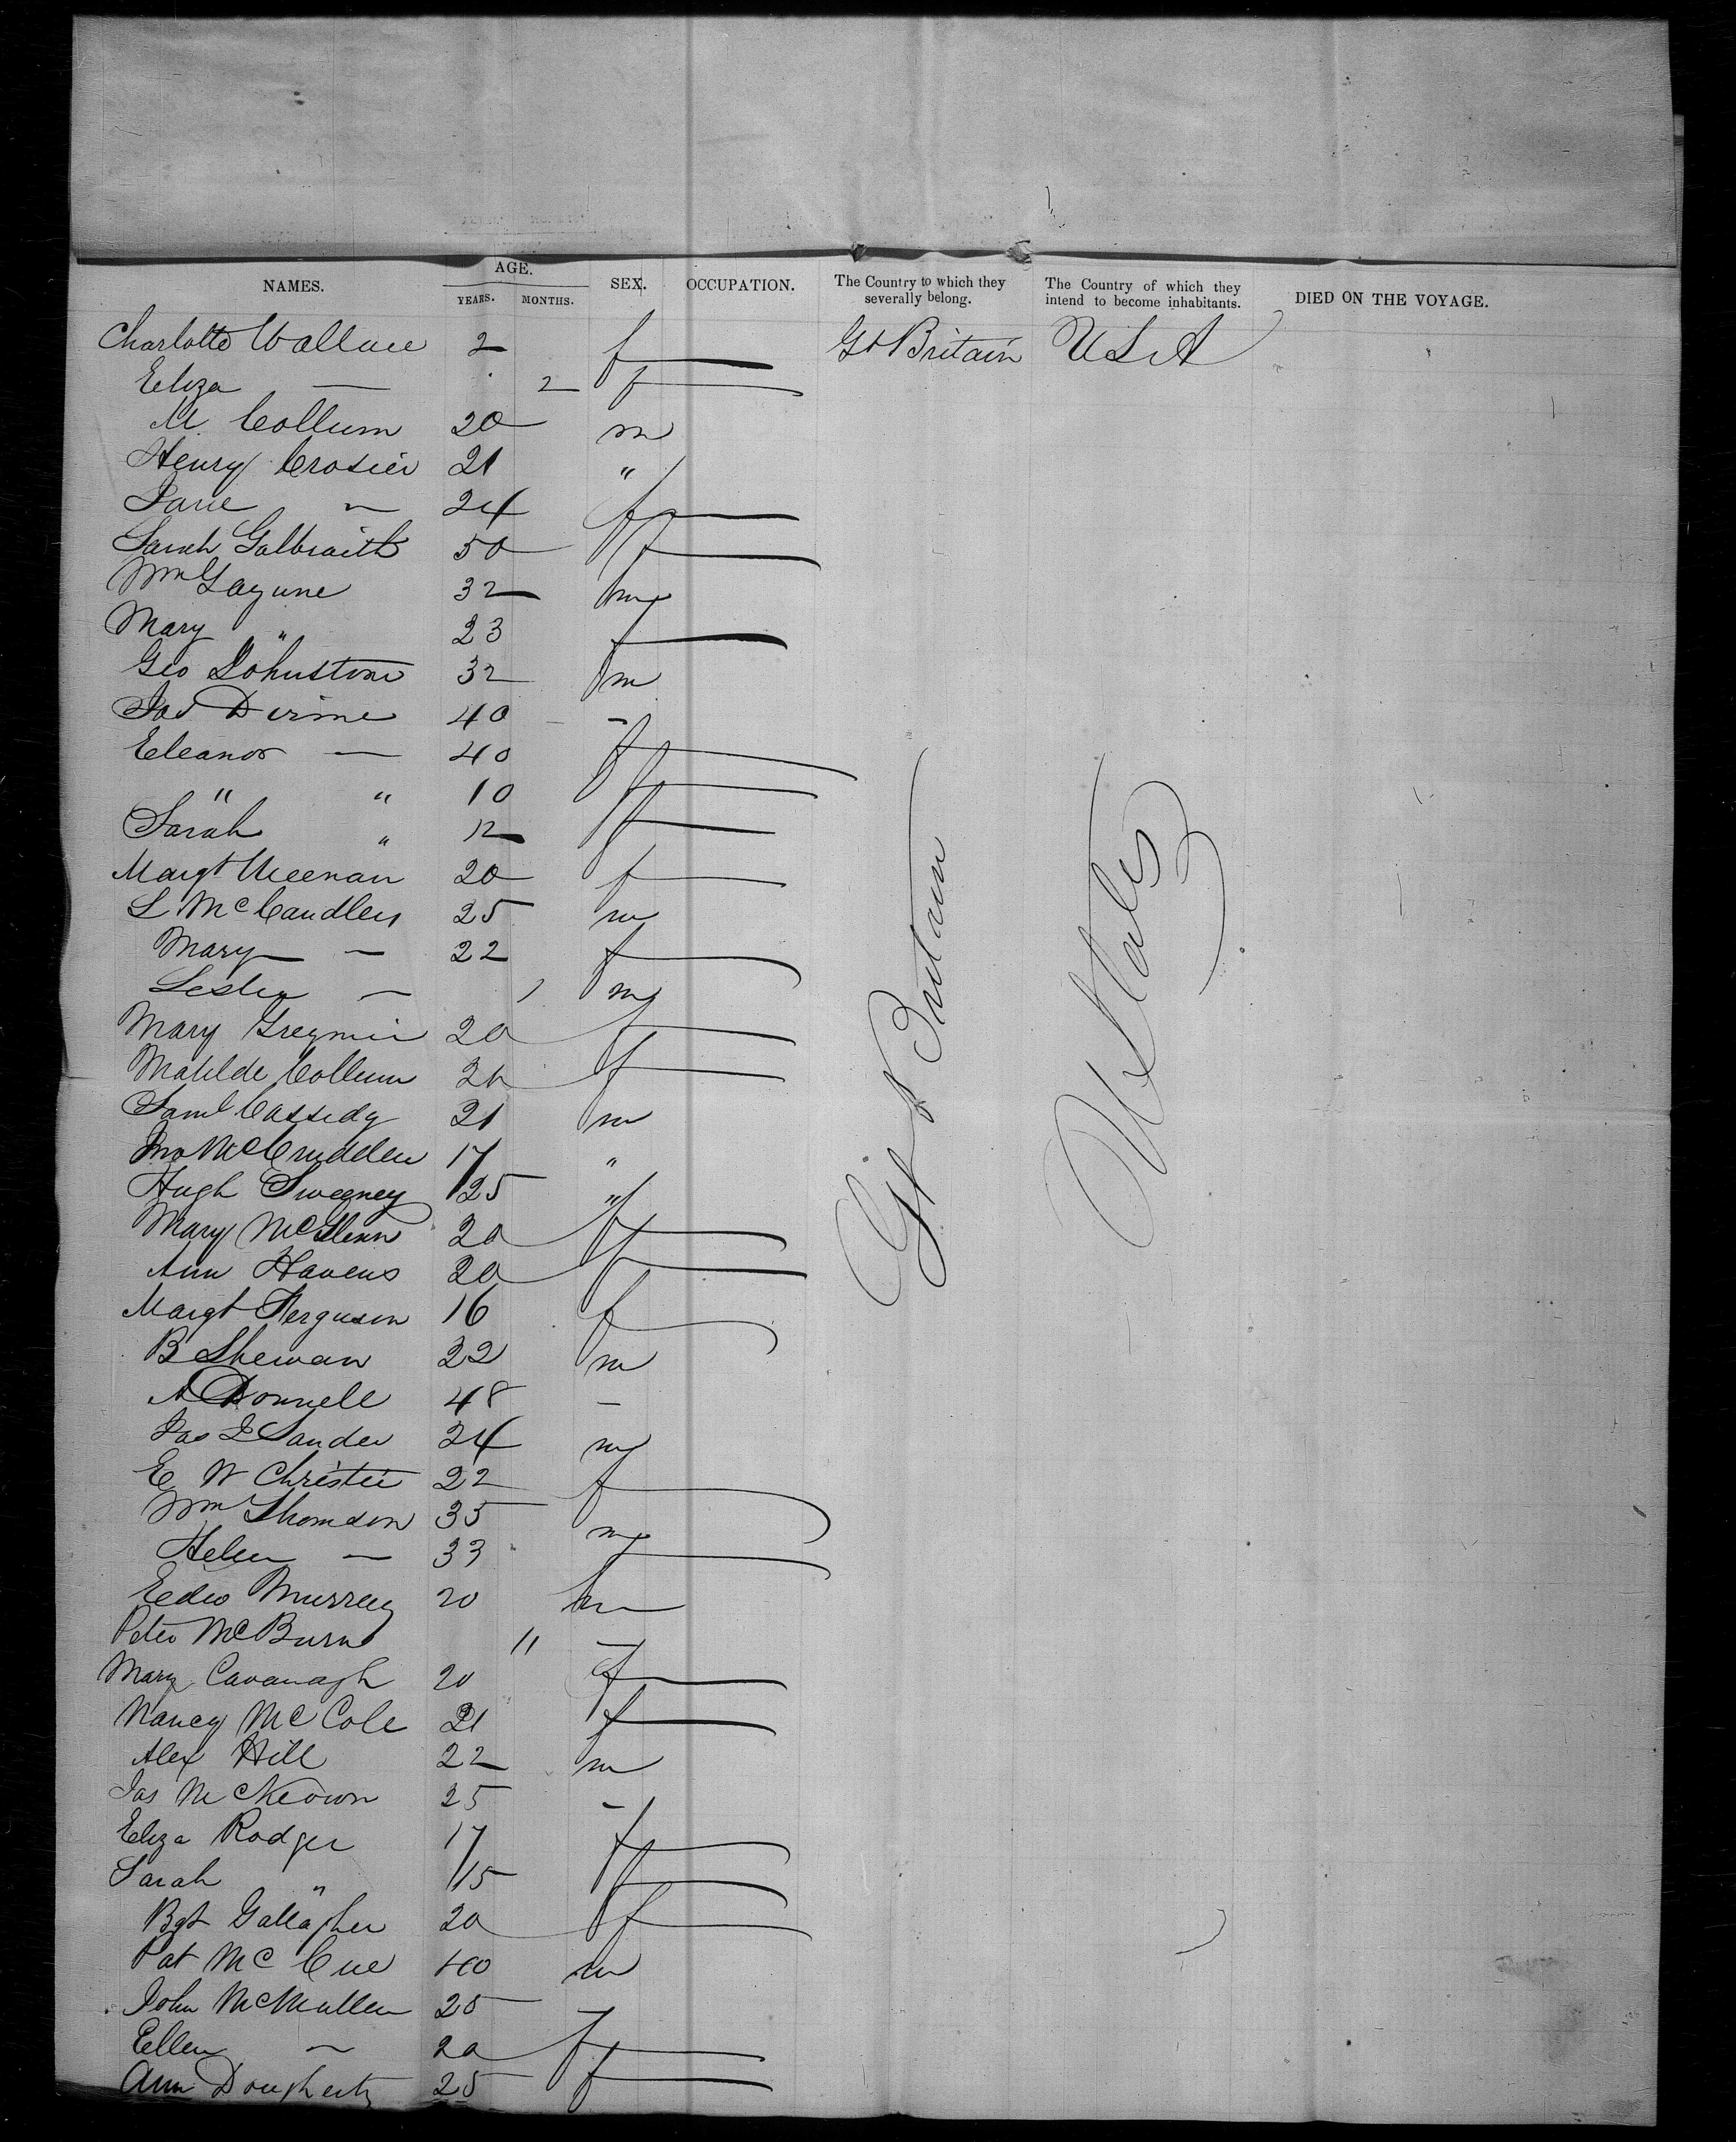 NAMES. AGE. SEX. OCCUPATION. The Country to which they severally belong. The Country of which they intend to become inhabitants. DIED ON THE VOYAGE.
YEARS. MONTHS.
Charlotte Wallace 2 f Gt Britain USA
Eliza — 2 f
M. Collum 20 m
Henry Crosier 21 "
Jane — 24 f
Sarah Galbraith 50 f
Wm 32 m
Mary " 23 f
Geo Johnston 32 m
Jas 40 -
Eleanor — 40 f
" " 10 f
Sarah " 12 f
Margt Meenan 20 f
L McCandless 25 m
Mary — 22 f
Leslie — 1 m
Mary 20 f
Matilde Collum f
Saml Cassidy 21 m
Jno McCrudden 17 "
Hugh Sweeney 25 "
Mary McGlenn 20 f
Ann Havens 20 f
Margt Ferguson 16 f
B Shewan 22 m
A Donnell 48 -
Jas 24 m
E W Christie 22 f
Wm Thomson 35 m
Helen — 33 f
Murray 20 m
Peter McBurn 11 -
Mary Cavanagh 20 f
Nancy McCole 21 f
Alex Hill 22 m
Jas McKeown 25 -
Eliza Rodger 17 f
Sarah " 15 f
Bgt Gallagher 20 f
Pat McCue 40 m
John McMullen 25 -
Ellen — 20 f
Ann Dougherty 25 f
Gt Britain
U States